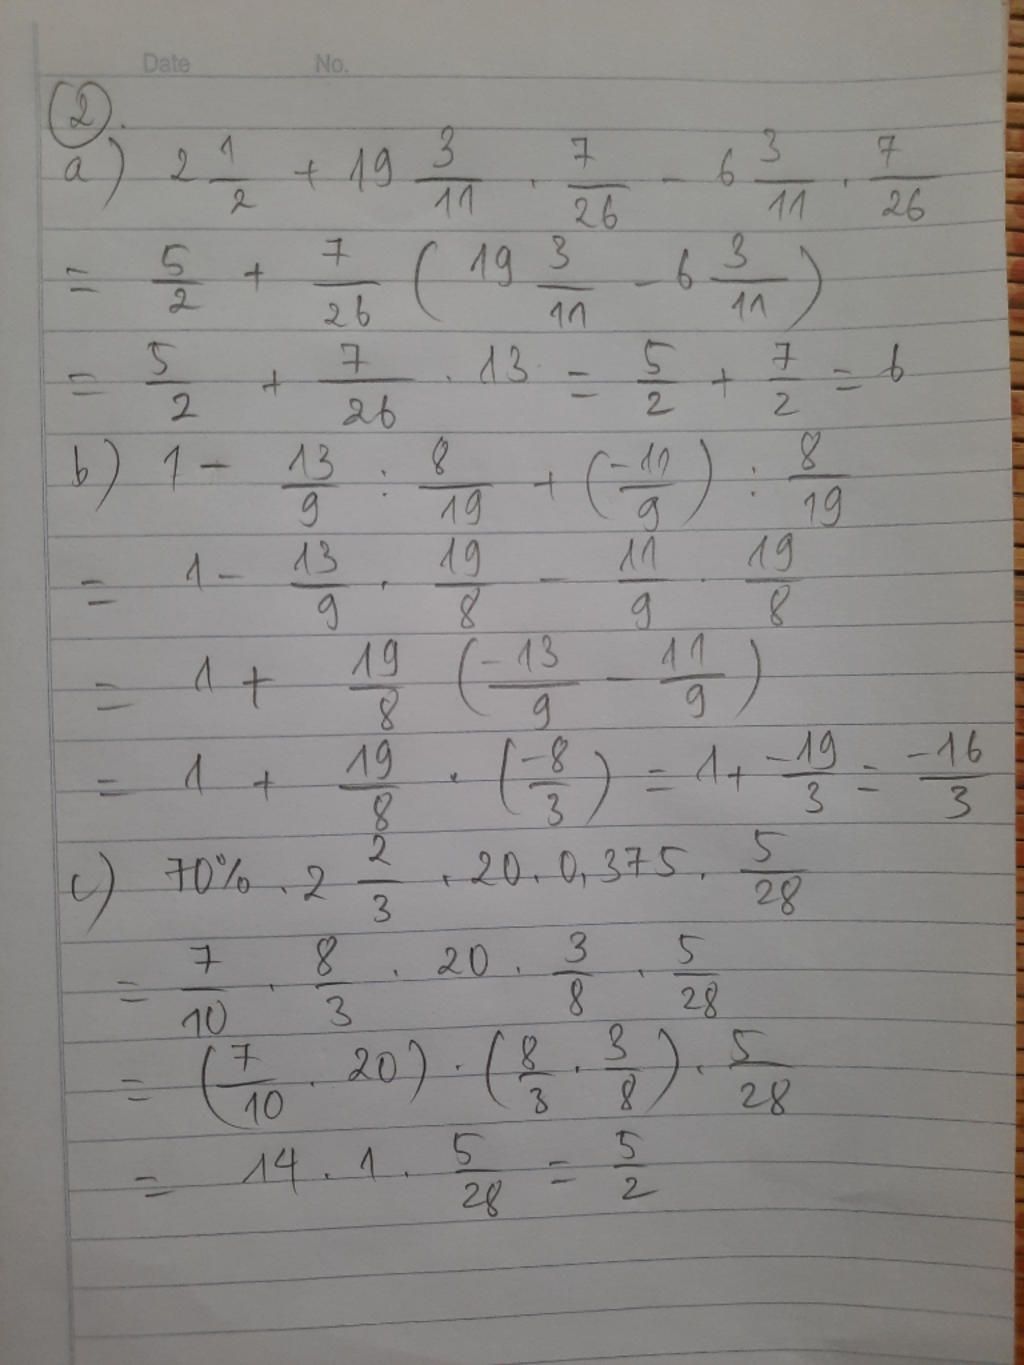 Date No.
2.
a) 2 1/2 + 19 3/11 . 7/26 - 6 3/11 . 7/26
= 5/2 + 7/26 (19 3/11 - 6 3/11)
= 5/2 + 7/26 . 13 = 5/2 + 7/2 = 6
b) 1 - 13/9 : 8/19 + (-11/9) : 8/19
= 1 - 13/9 . 19/8 - 11/9 . 19/8
= 1 + 19/8 (-13/9 - 11/9)
= 1 + 19/8 . (-8/3) = 1 + -19/3 = -16/3
c) 70% . 2 2/3 . 20 . 0,375 . 5/28
= 7/10 . 8/3 . 20 . 3/8 . 5/28
= (7/10 . 20) . (8/3 . 3/8) . 5/28
= 14 . 1 . 5/28 = 5/2